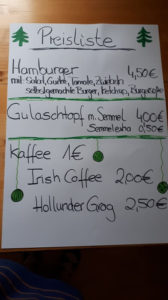 Preisliste
Hamburger 4,50€
mit Salat, Gurke, Tomate, Zwiebeln
selbstgemachte Burger, Ketchup, Burgersoße
Gulaschtopf m. Semmel 4,00€
Semmel extra 0,50€
Kaffee 1€
Irish Coffee 2,00€
Hollunder Grog 2,50€